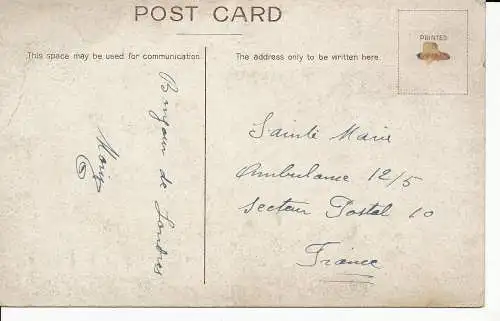 POST CARD
This space may be used for communication.
The address only to be written here.
PRINTED
Bonjour de Londres
Sainte Marie
Ambulance 12/5
Secteur Postal 10
France